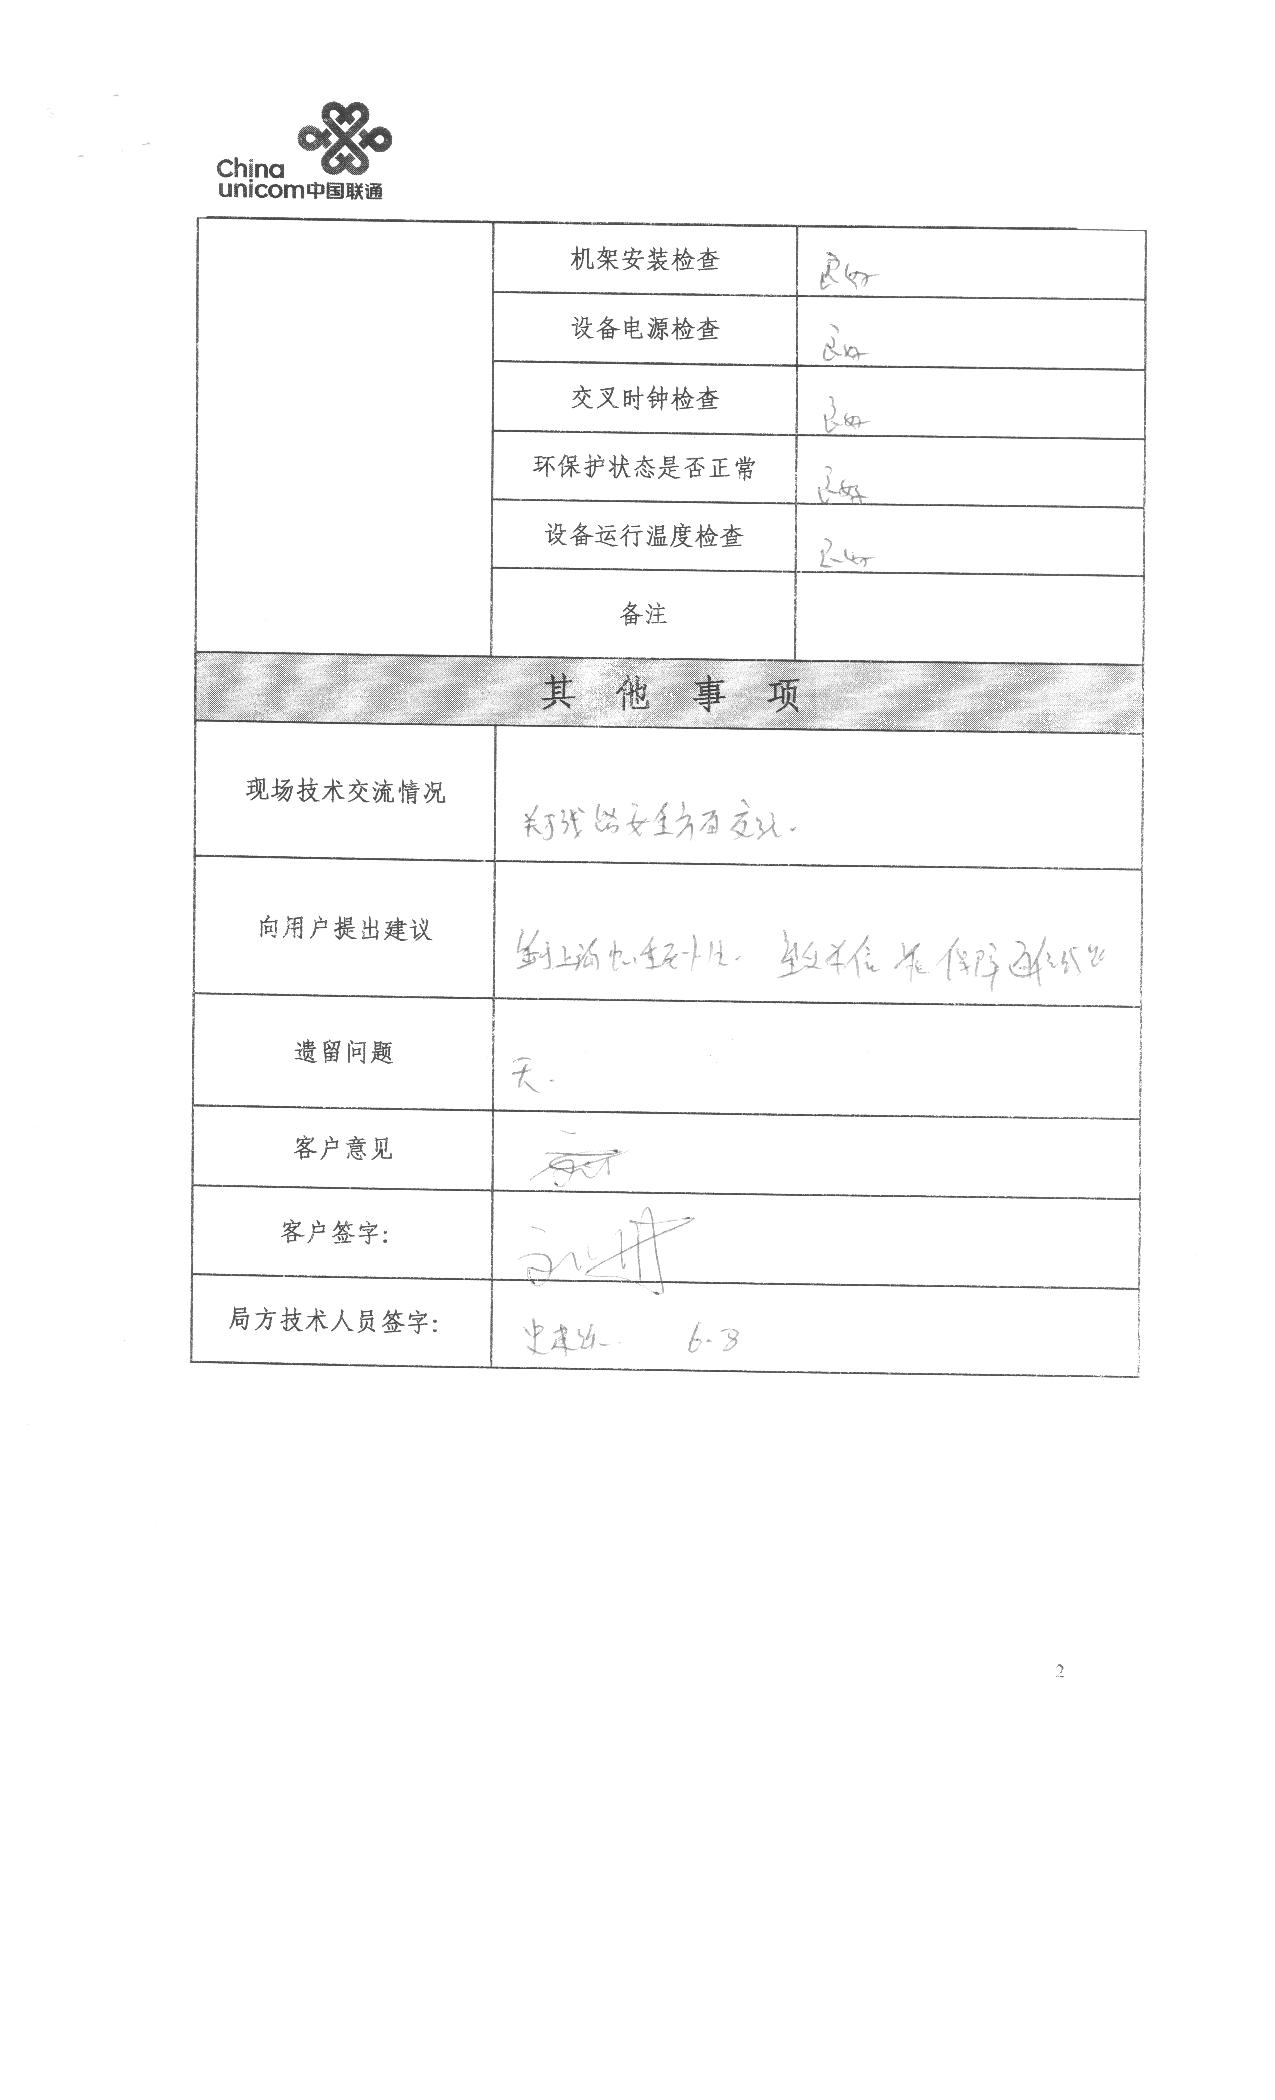 China
unicom中国联通
机架安装检查 良好
设备电源检查 良好
交叉时钟检查 良好
环保护状态是否正常 良好
设备运行温度检查 良好
备注
其他事项
现场技术交流情况 关于线路安全方面交流.
向用户提出建议 鉴于上海 重要性. 保障 线路
遗留问题 无.
客户意见
客户签字:
局方技术人员签字: 史 6.3
2